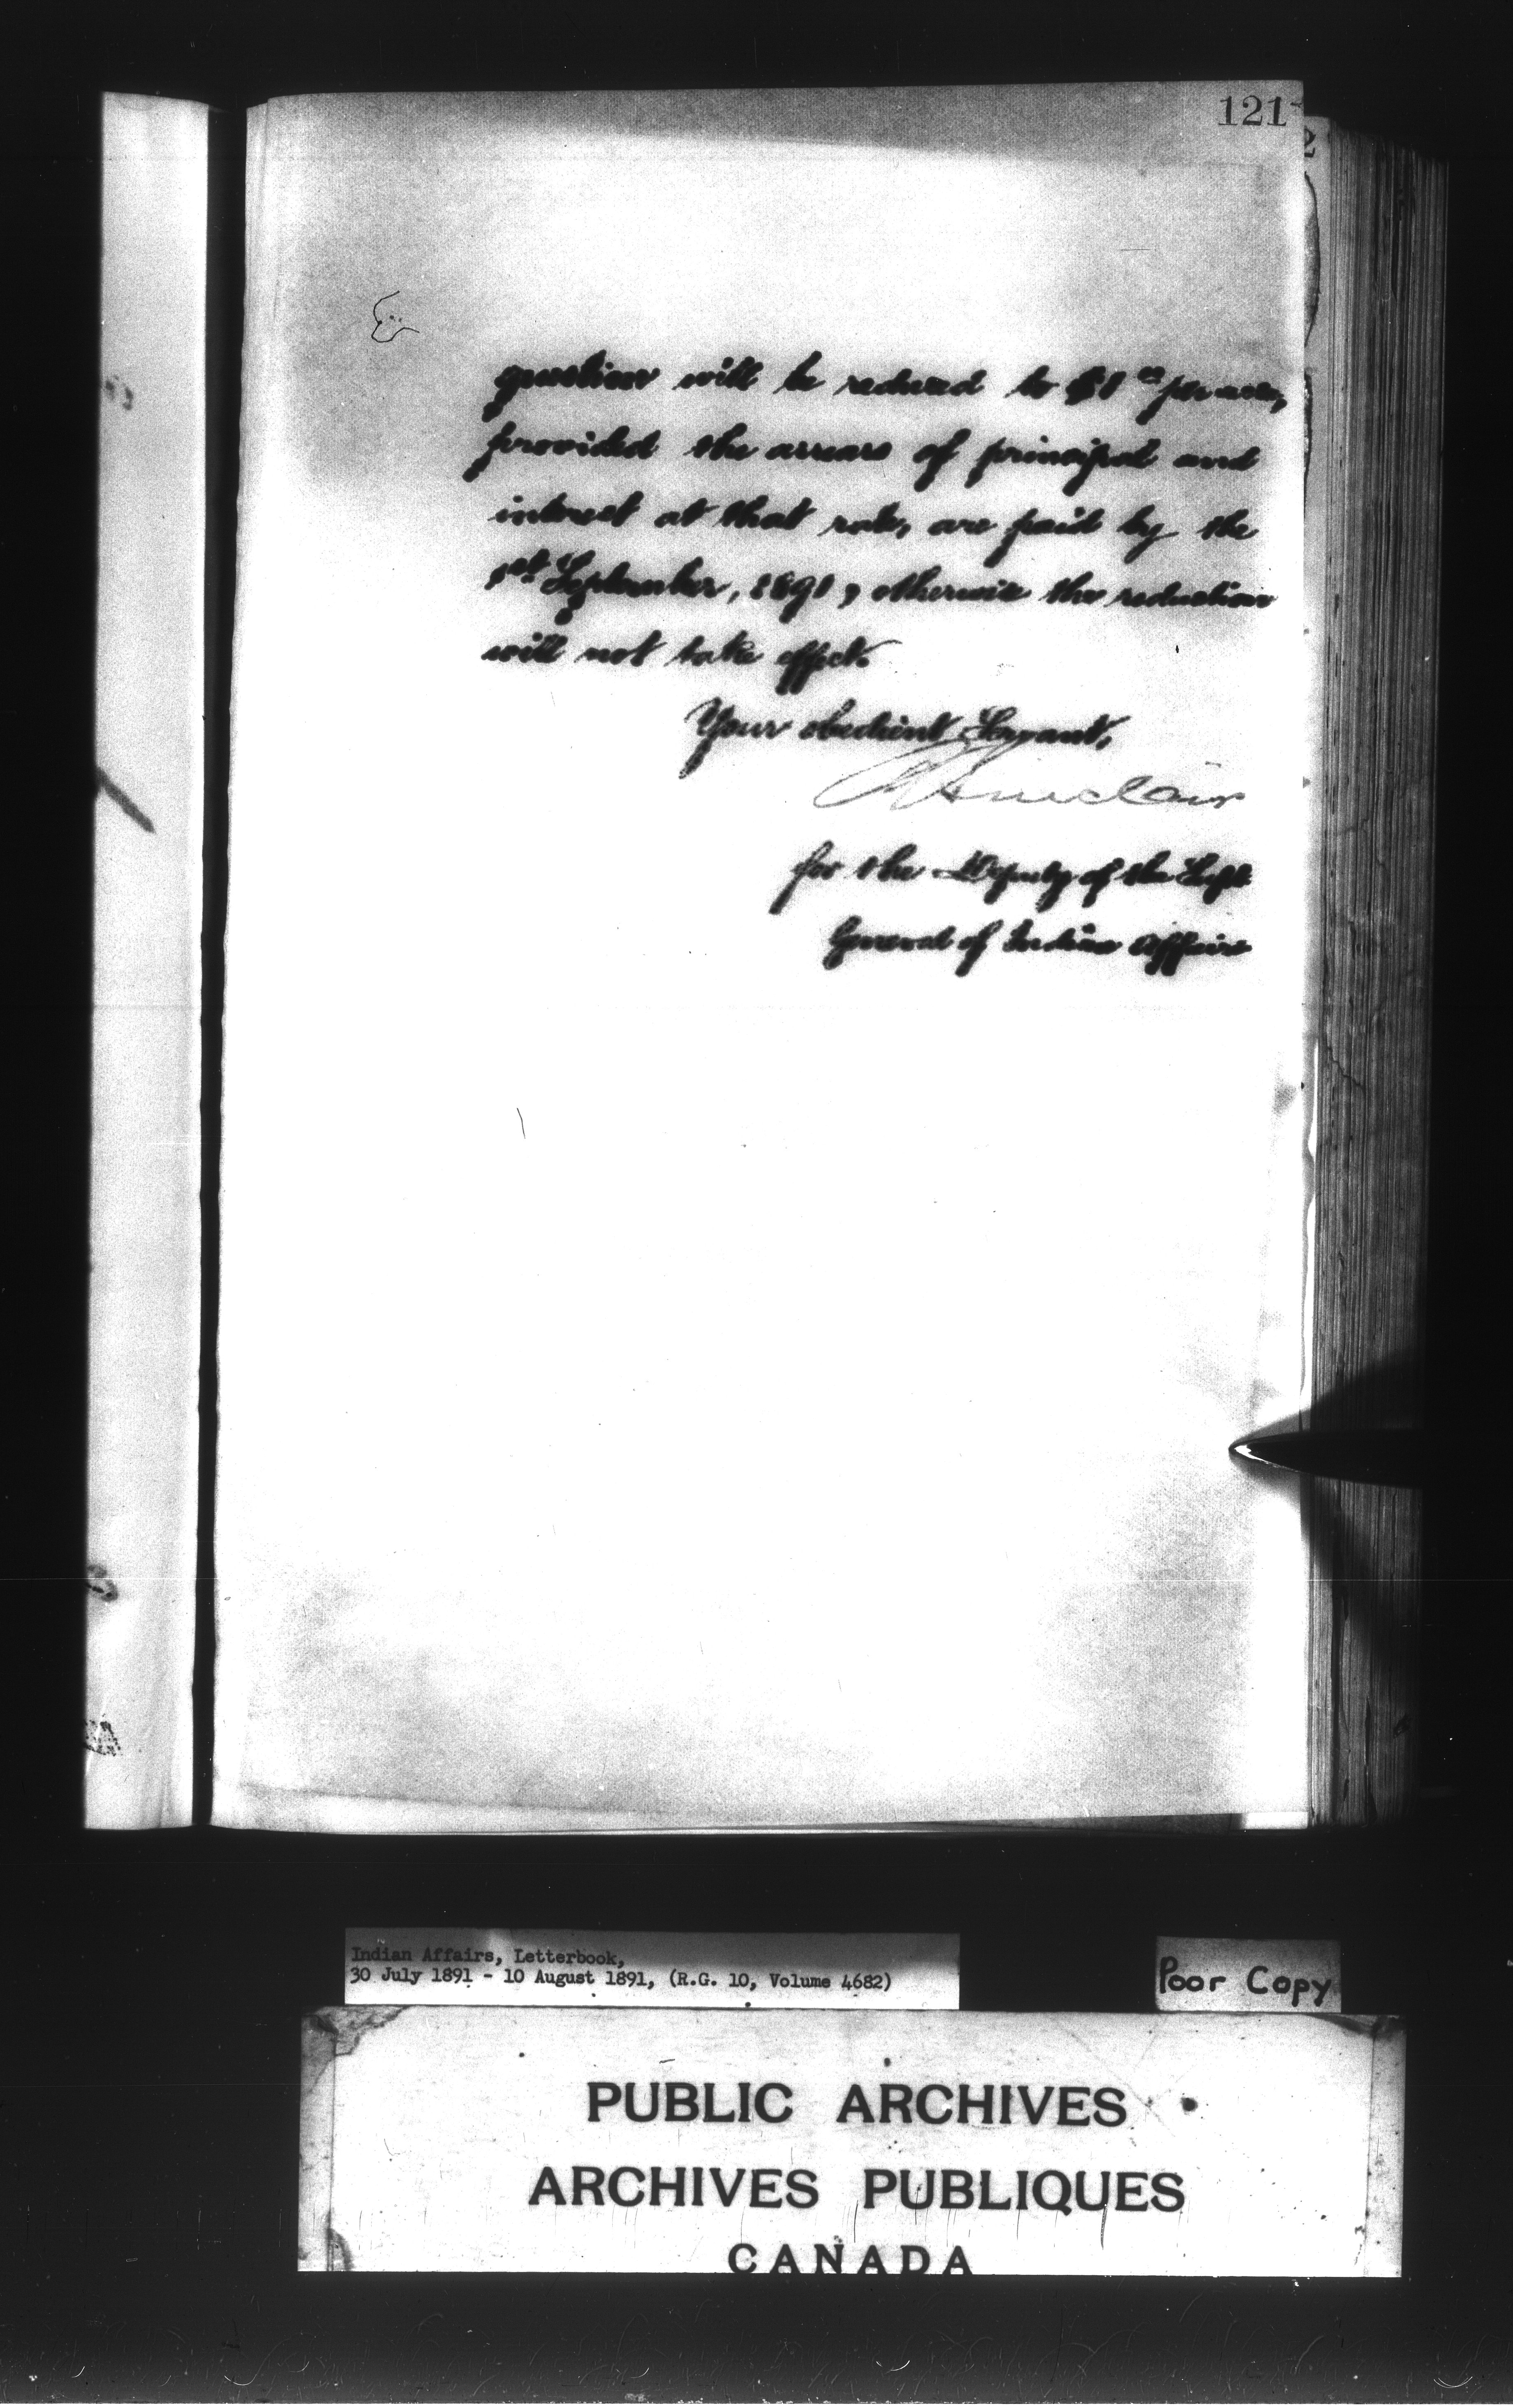 121
question will be reduced to $1 00 per acre,
provided the arrears of principal and
interest at that rate, are paid by the
1st September, 1891, otherwise the reduction
will not take effect.
Your obedient Servant,
Sinclair
for the Deputy of the Supt
General of Indian Affairs
Indian Affairs, Letterbook,
30 July 1891 - 10 August 1891, (R.G. 10, Volume 4682)
Poor Copy
PUBLIC ARCHIVES
ARCHIVES PUBLIQUES
CANADA